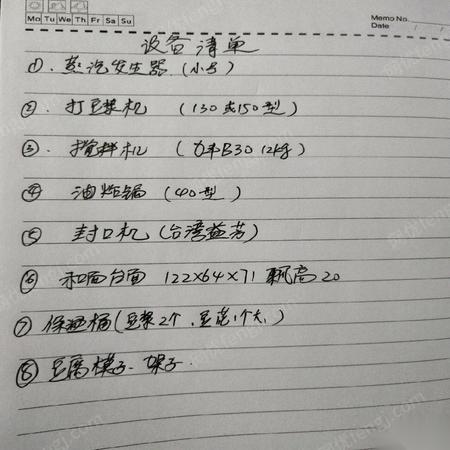 Mo Tu We Th Fr Sa Su
Memo No.
Date / /
设备清单
①. 蒸汽发生器 (小号)
②. 打豆浆机 (130或150型)
③. 搅拌机 (力丰B30 12kg)
④ 油炸锅 (40型)
⑤ 封口机 (台湾益芳)
⑥ 和面台面 122×64×71 飘高20
⑦ 保温桶 (豆浆2个、豆花1个大)
⑧ 豆腐模子、架子